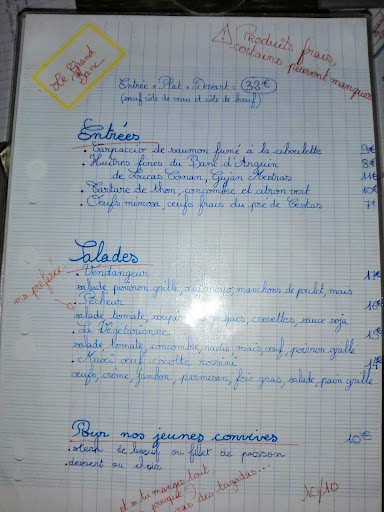 Le Grand Banc
Produits frais,
certains peuvent manquer
Entrée + Plat + Dessert = 33€
(sauf côte de veau et côte de bœuf)
Entrées
. Carpaccio de saumon fumé à la ciboulette 9€
. Huîtres fines du Banc d'Arguin
de Lucas Conan, Gujan Mestras 11€
. Tartare de thon, concombre et citron vert 10€
. Œufs mimosa, œufs frais du pré de Cestas 7€
Salades
. Vendangeur 17€
salade, poivron grillé, manchons de poulet, maïs
ma préférée
. Pêcheur
salade, tomate, crevettes, sauce soja
. La Végétarienne
salade, tomate, concombre, radis, maïs, œuf, poivron grillé
. Maxi œuf cocotte rossini
œufs, crème, jambon, parmesan, foie gras, salade, pain grillé
Pour nos jeunes convives 10€
. steak de bœuf ou filet de poisson
. dessert au choix
et si tu manges tout,
presque
des tagadas...
10/10